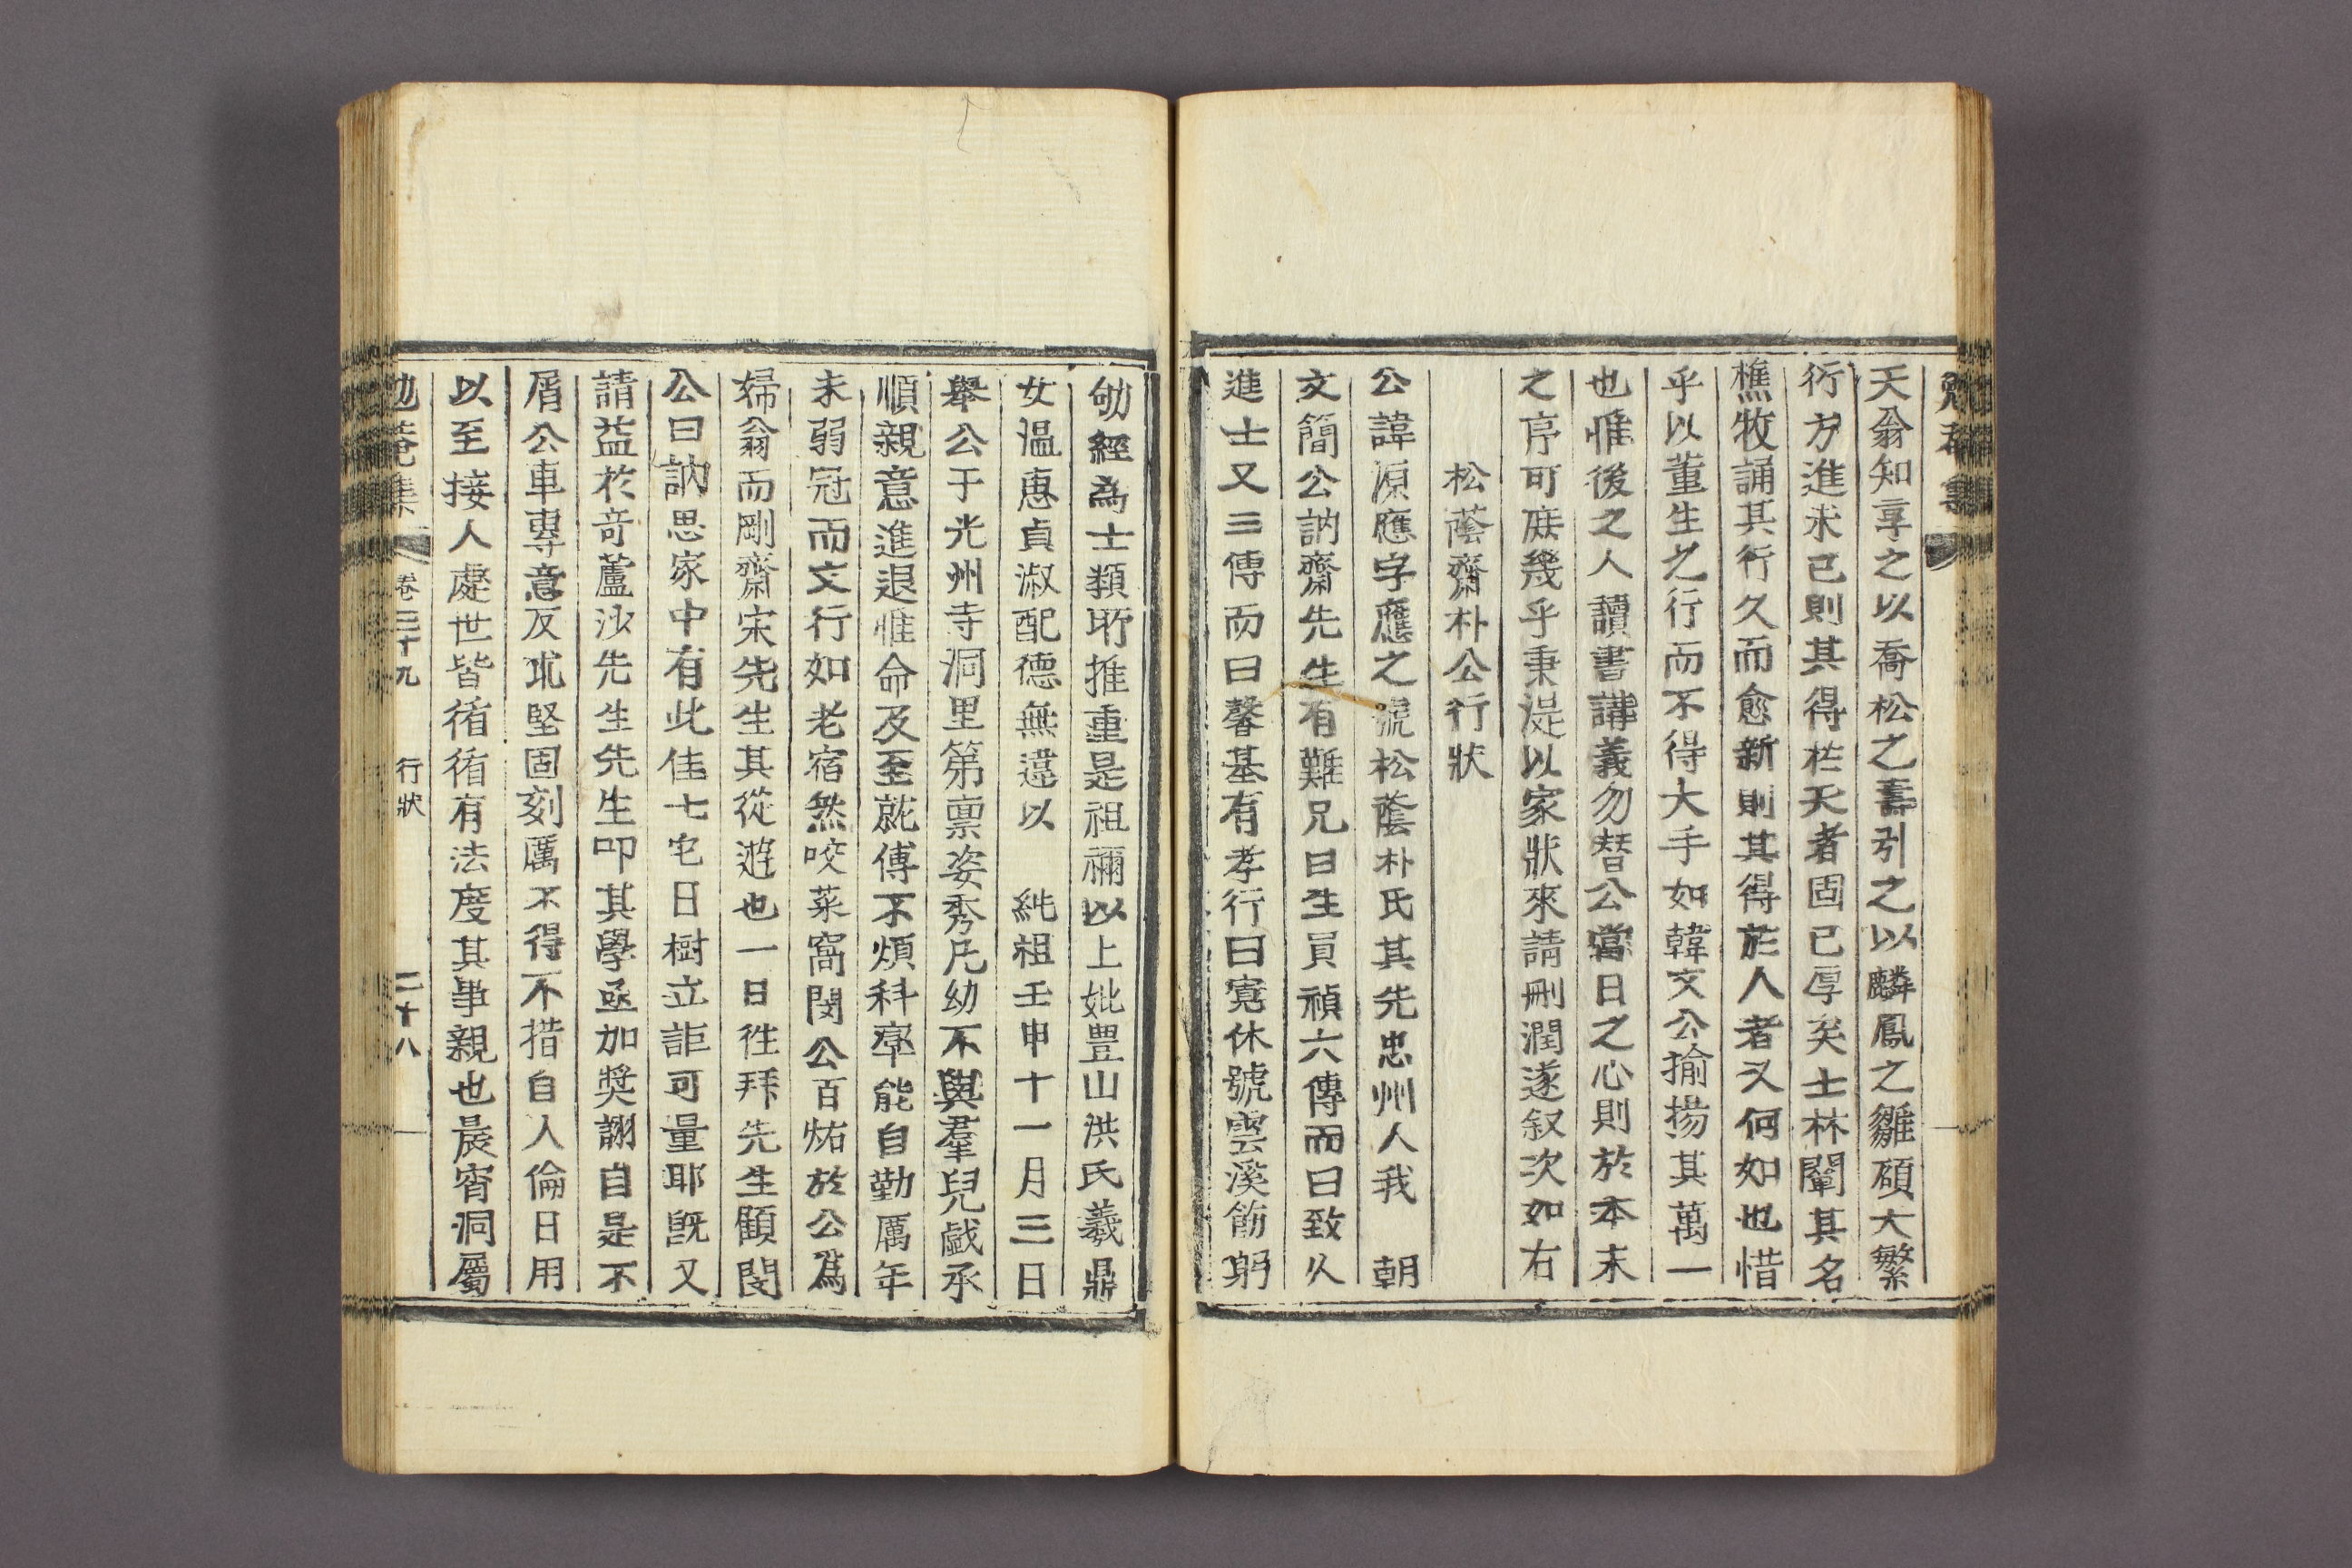 天翁知享之以喬松之壽引之以麟鳳之雛碩大繁
衍方進未已則其得於天者固已厚矣士林闡其名
樵牧誦其行久而愈新則其得於人者又何如也惜
乎以董生之行而不得大手如韓文公揄揚其萬一
也惟後之人讀書講義勿替公當日之心則於本末
之序可庶幾乎秉湜以家狀來請刪潤遂叙次如右
松蔭齋朴公行狀
公諱源應字應之號松蔭朴氏其先忠州人我 朝
文簡公訥齋先生有難兄曰生員禎六傳而曰致久
進士又三傳而曰馨基有孝行曰寬休號雲溪飭躬
劬經為士類所推重是祖禰以上妣豊山洪氏羲鼎
女温惠貞淑配德無違以 純祖壬申十一月三日
擧公于光州寺洞里第禀姿秀凡幼不與羣兒戱承
順親意進退惟命及至就傅不煩科率能自勤厲年
未弱冠而文行如老宿然咬菜窩閔公百㶭於公爲
婦翁而剛齋宋先生其從遊也一日徃拜先生顧閔
公曰訥思家中有此佳士宅日樹立詎可量耶旣又
請益於奇蘆沙先生先生叩其學亟加奬詡自是不
屑公車專意反求堅固刻厲不得不措自人倫日用
以至接人處世皆循循有法度其事親也晨宵洞屬
卷三十九 行狀 二十八